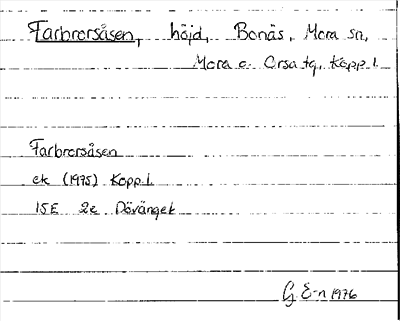 Farbrorsåsen, höjd, Bonäs, Mora sn,
Mora o. Orsa tg, Kopp. l.
Farbrorsåsen
ek (1975) Kopp. l.
15E 2e Dövänget
G. E-n 1976